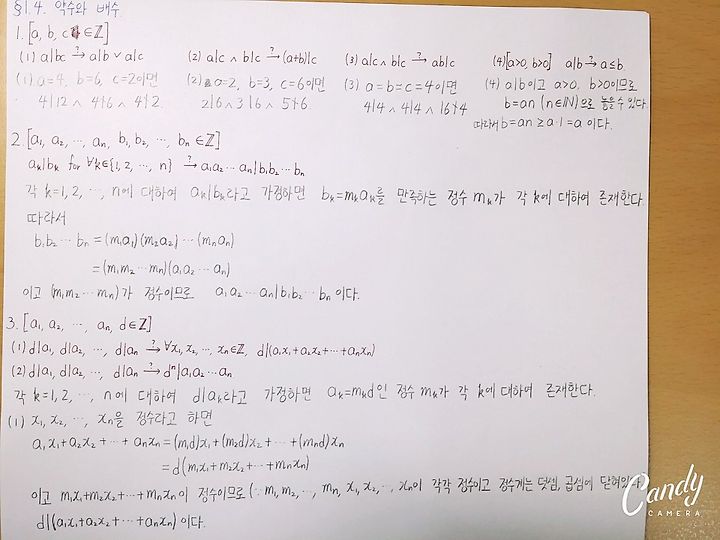 §1.4. 약수와 배수
1. [a, b, c ∈ ℤ]
(1) a|bc →? a|b ∨ a|c (2) a|c ∧ b|c →? (a+b)|c (3) a|c ∧ b|c →? ab|c (4) [a>0, b>0] a|b →? a≤b.
(1) a=4, b=6, c=2이면 (2) a=2, b=3, c=6이면 (3) a=b=c=4이면 (4) a|b이고 a>0, b>0이므로
4|12 ∧ 4∤6 ∧ 4∤2. 2|6 ∧ 3|6 ∧ 5∤6. 4|4 ∧ 4|4 ∧ 16∤4 b=an (n∈ℕ)으로 놓을 수 있다.
따라서 b=an ≥ a·1=a 이다.
2. [a₁, a₂, ⋯, aₙ, b₁, b₂, ⋯, bₙ ∈ ℤ]
aₖ|bₖ for ∀k∈{1, 2, ⋯, n} →? a₁a₂⋯aₙ|b₁b₂⋯bₙ
각 k=1, 2, ⋯, n에 대하여 aₖ|bₖ라고 가정하면 bₖ=mₖaₖ를 만족하는 정수 mₖ가 각 k에 대하여 존재한다.
따라서
b₁b₂⋯bₙ = (m₁a₁)(m₂a₂)⋯(mₙaₙ)
= (m₁m₂⋯mₙ)(a₁a₂⋯aₙ)
이고 (m₁m₂⋯mₙ)가 정수이므로 a₁a₂⋯aₙ|b₁b₂⋯bₙ 이다.
3. [a₁, a₂, ⋯, aₙ, d∈ℤ]
(1) d|a₁, d|a₂, ⋯, d|aₙ →? ∀x₁, x₂, ⋯, xₙ∈ℤ, d|(a₁x₁+a₂x₂+⋯+aₙxₙ)
(2) d|a₁, d|a₂, ⋯, d|aₙ →? dⁿ|a₁a₂⋯aₙ
각 k=1, 2, ⋯, n에 대하여 d|aₖ라고 가정하면 aₖ=mₖd인 정수 mₖ가 각 k에 대하여 존재한다.
(1) x₁, x₂, ⋯, xₙ을 정수라고 하면
a₁x₁+a₂x₂+⋯+aₙxₙ = (m₁d)x₁+(m₂d)x₂+⋯+(mₙd)xₙ
= d(m₁x₁+m₂x₂+⋯+mₙxₙ)
이고 m₁x₁+m₂x₂+⋯+mₙxₙ이 정수이므로 (∵ m₁, m₂, ⋯, mₙ, x₁, x₂, ⋯, xₙ이 각각 정수이고 정수계는 덧셈, 곱셈에 닫혀있다)
d|(a₁x₁+a₂x₂+⋯+aₙxₙ)이다.
Candy
CAMERA